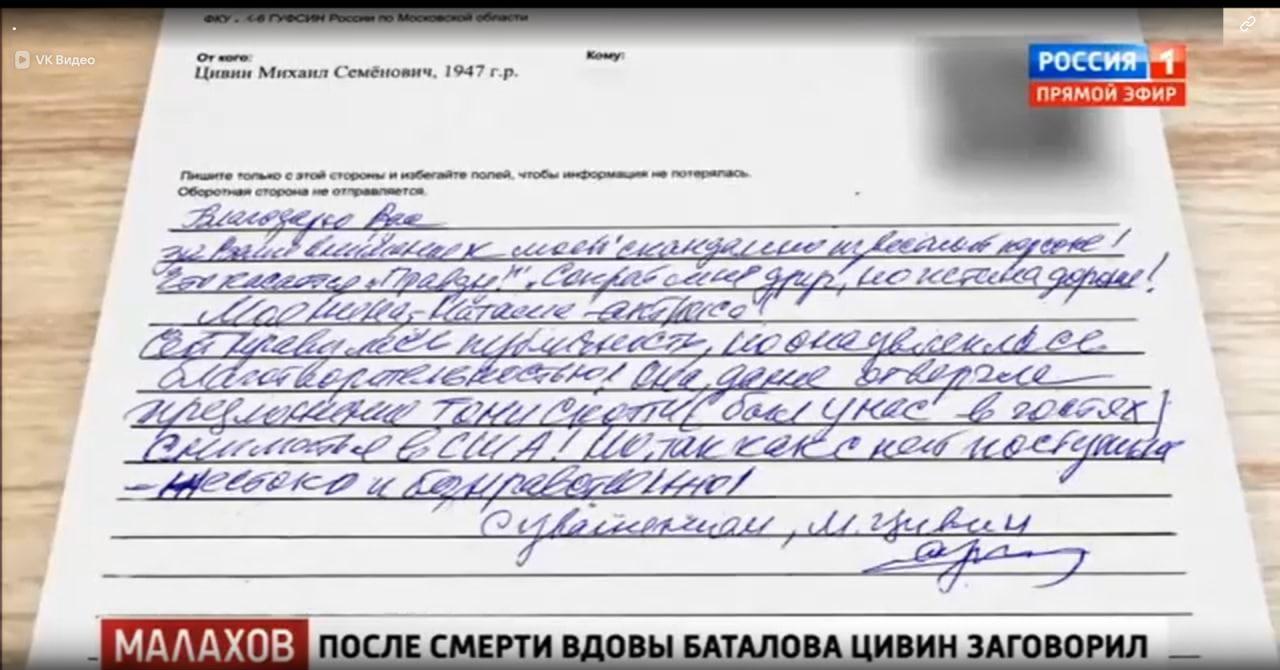 ФКУ
-6 ГУФСИН России по Московской области
VK Видео
От кого:
Кому:
Цивин Михаил Семёнович, 1947 г.р.
РОССИЯ 1
ПРЯМОЙ ЭФИР
Пишите только с этой стороны и избегайте полей, чтобы информация не потерялась.
Оборотная сторона не отправляется.
Благодарю Вас
за Ваше внимание к моей скандально известной персоне!
Что касается "Правды". Сократ мне друг, но истина дороже!
Моя жена, Наташа - актриса
Ей нравилась публичность, но она увлеклась
благотворительностью! Она даже отвергла
предложение Тони Скотта (был у нас в гостях)
сниматься в США! Но, так как с ней поступили
- жестоко и безнравственно!
С уважением, М. Цивин
МАЛАХОВ ПОСЛЕ СМЕРТИ ВДОВЫ БАТАЛОВА ЦИВИН ЗАГОВОРИЛ